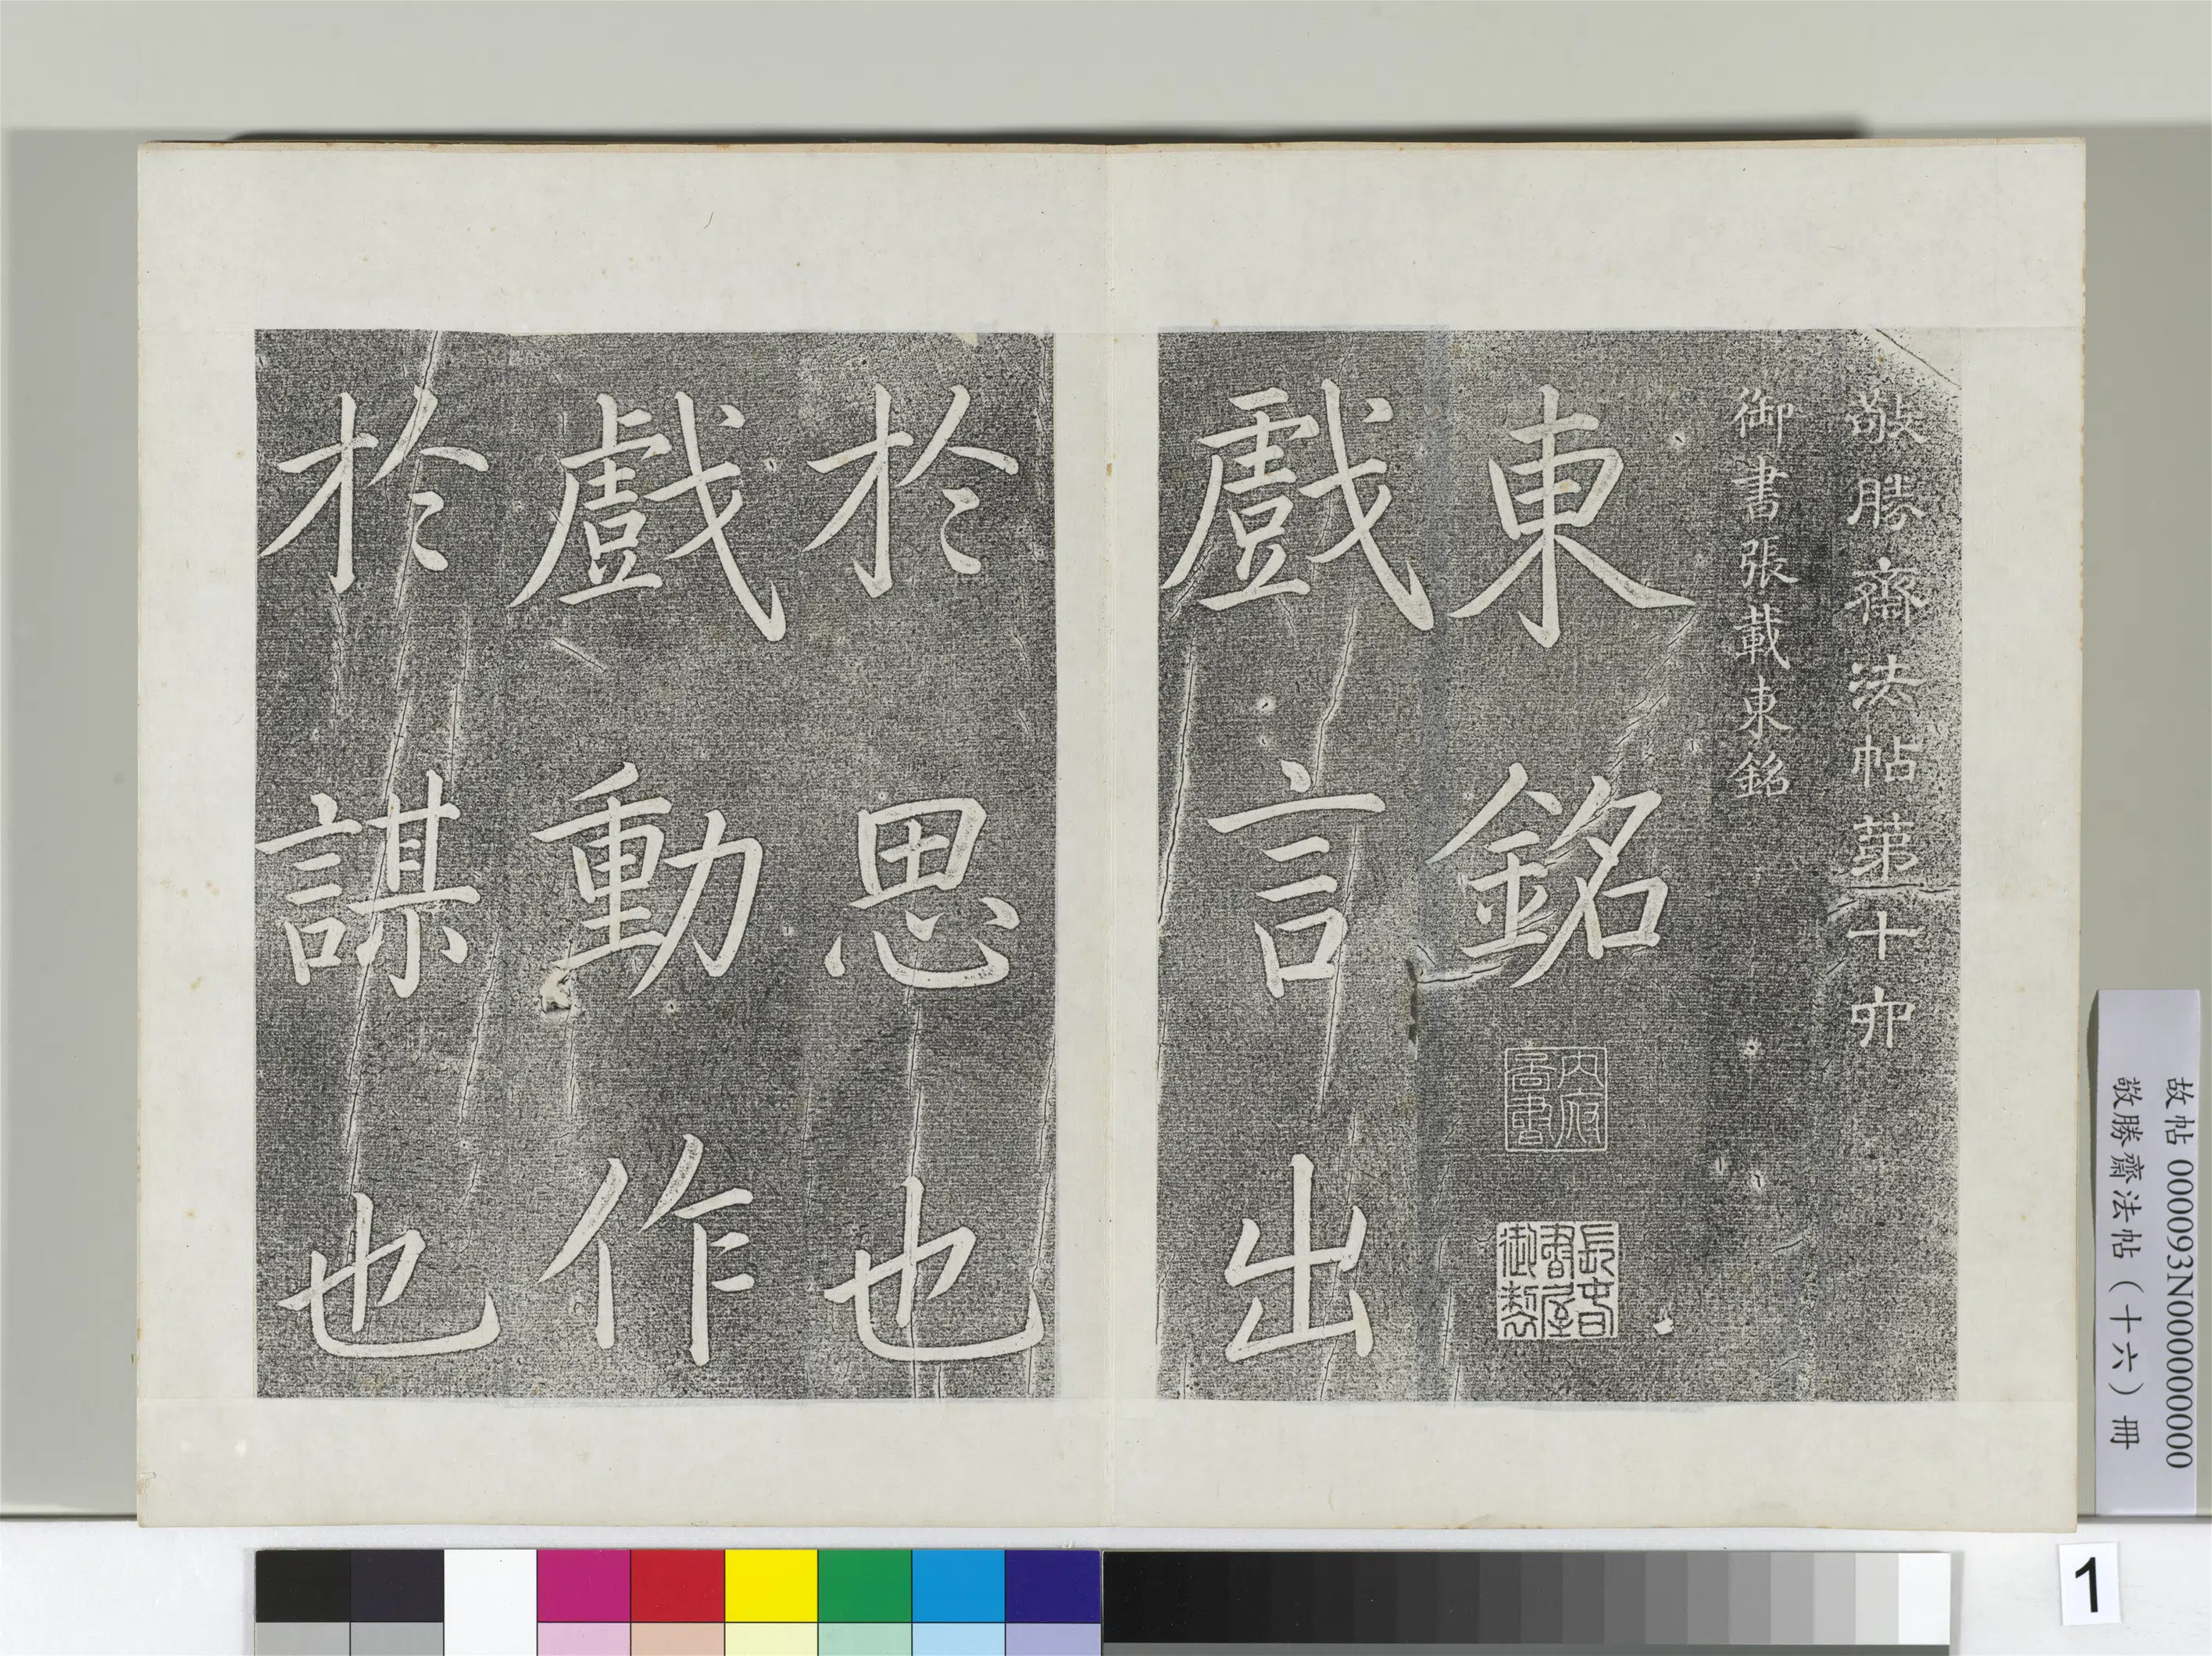 敬勝齋法帖第十六
御書張載東銘
東銘
戲言出
於思也
戲動作
於謀也
故帖 000093N000000000
敬勝齋法帖（十六）冊
1